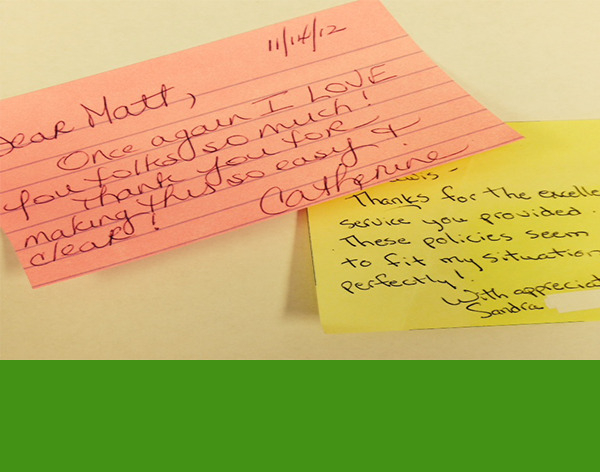 11/14/12
Dear Matt,
Once again I LOVE
you folks so much!
Thank you for
making this so easy &
clear!
Catherine
Thanks for the excelle
service you provided.
These policies seem
to fit my situation
perfectly!
With appreciat
Sandra